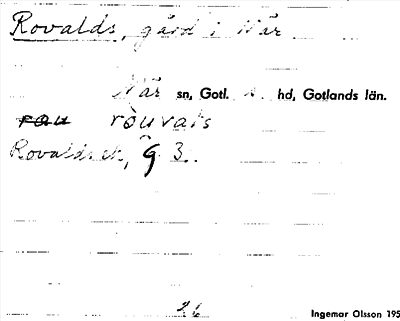 Rovalds, gård i När
När sn, Gotl. s. hd, Gotlands län.
rau ròuvals
Rovalds ek, G 3.
26
Ingemar Olsson 195